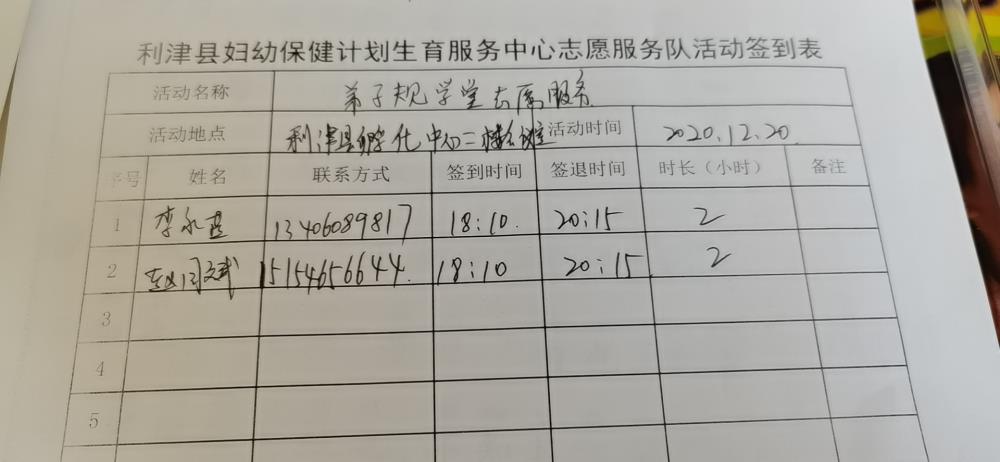 利津县妇幼保健计划生育服务中心志愿服务队活动签到表
活动名称 弟子规学堂志愿服务
活动地点 利津县孵化中心二楼 活动时间 2020.12.20
序号 姓名 联系方式 签到时间 签退时间 时长（小时） 备注
1 李永 13406089817 18:10 20:15 2
2 15154656644 18:10 20:15 2
3
4
5